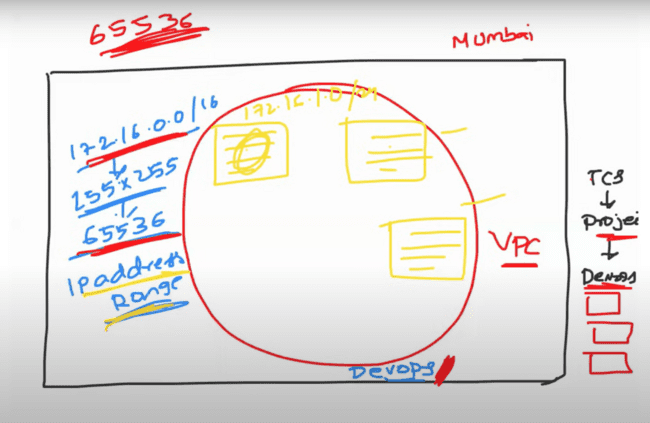 65536
Mumbai
172.16.0.0/16
255 x 255
65536
IP address
Range
172.16.1.0/
VPC
Devops
TCS
Projec
Devops